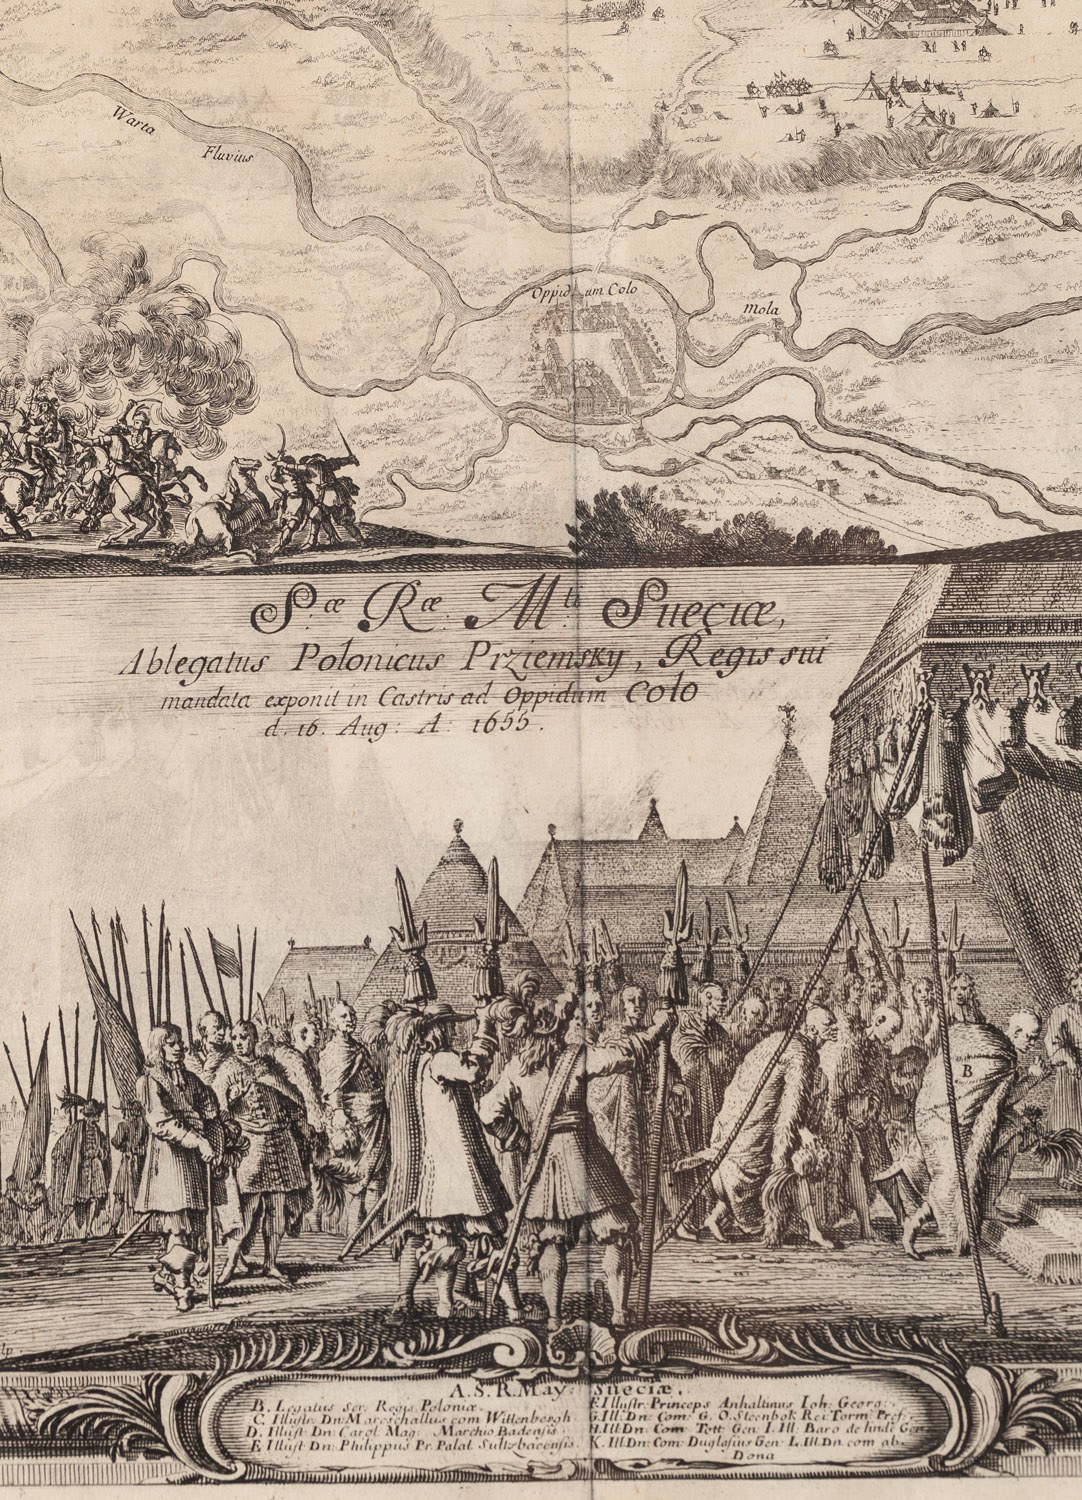 Warta
Fluvius
Oppidum Colo
Mola
S.æ Ræ: M:tis Sueciæ,
Ablegatus Polonicus Prziemsky, Regis sui
mandata exponit in Castris ad Oppidum Colo
d. 16. Aug: A: 1655.
B
A.S.R.May: Sueciæ.
B. Legatus Ser. Regis Poloniæ.
C. Illustr: Dn: Mareschallus com Wittenbergh
D. Illust Dn: Carol Mag: Marchio Badensis
E Illust Dn: Philippus Pr. Palat. Sultzbacensis.
F. Illustr: Princeps Anhaltinus Ioh: Georg:
G. Ill: Dn: Com: G. O. Steenbok Rei Torm: Pref:
H. Ill: Dn: Com: Tott Gen: I. Ill: Baro de linde Gen
K. Ill: Dn: Com: Duglasius Gen: L. Ill: Dn. com ab.
Dona